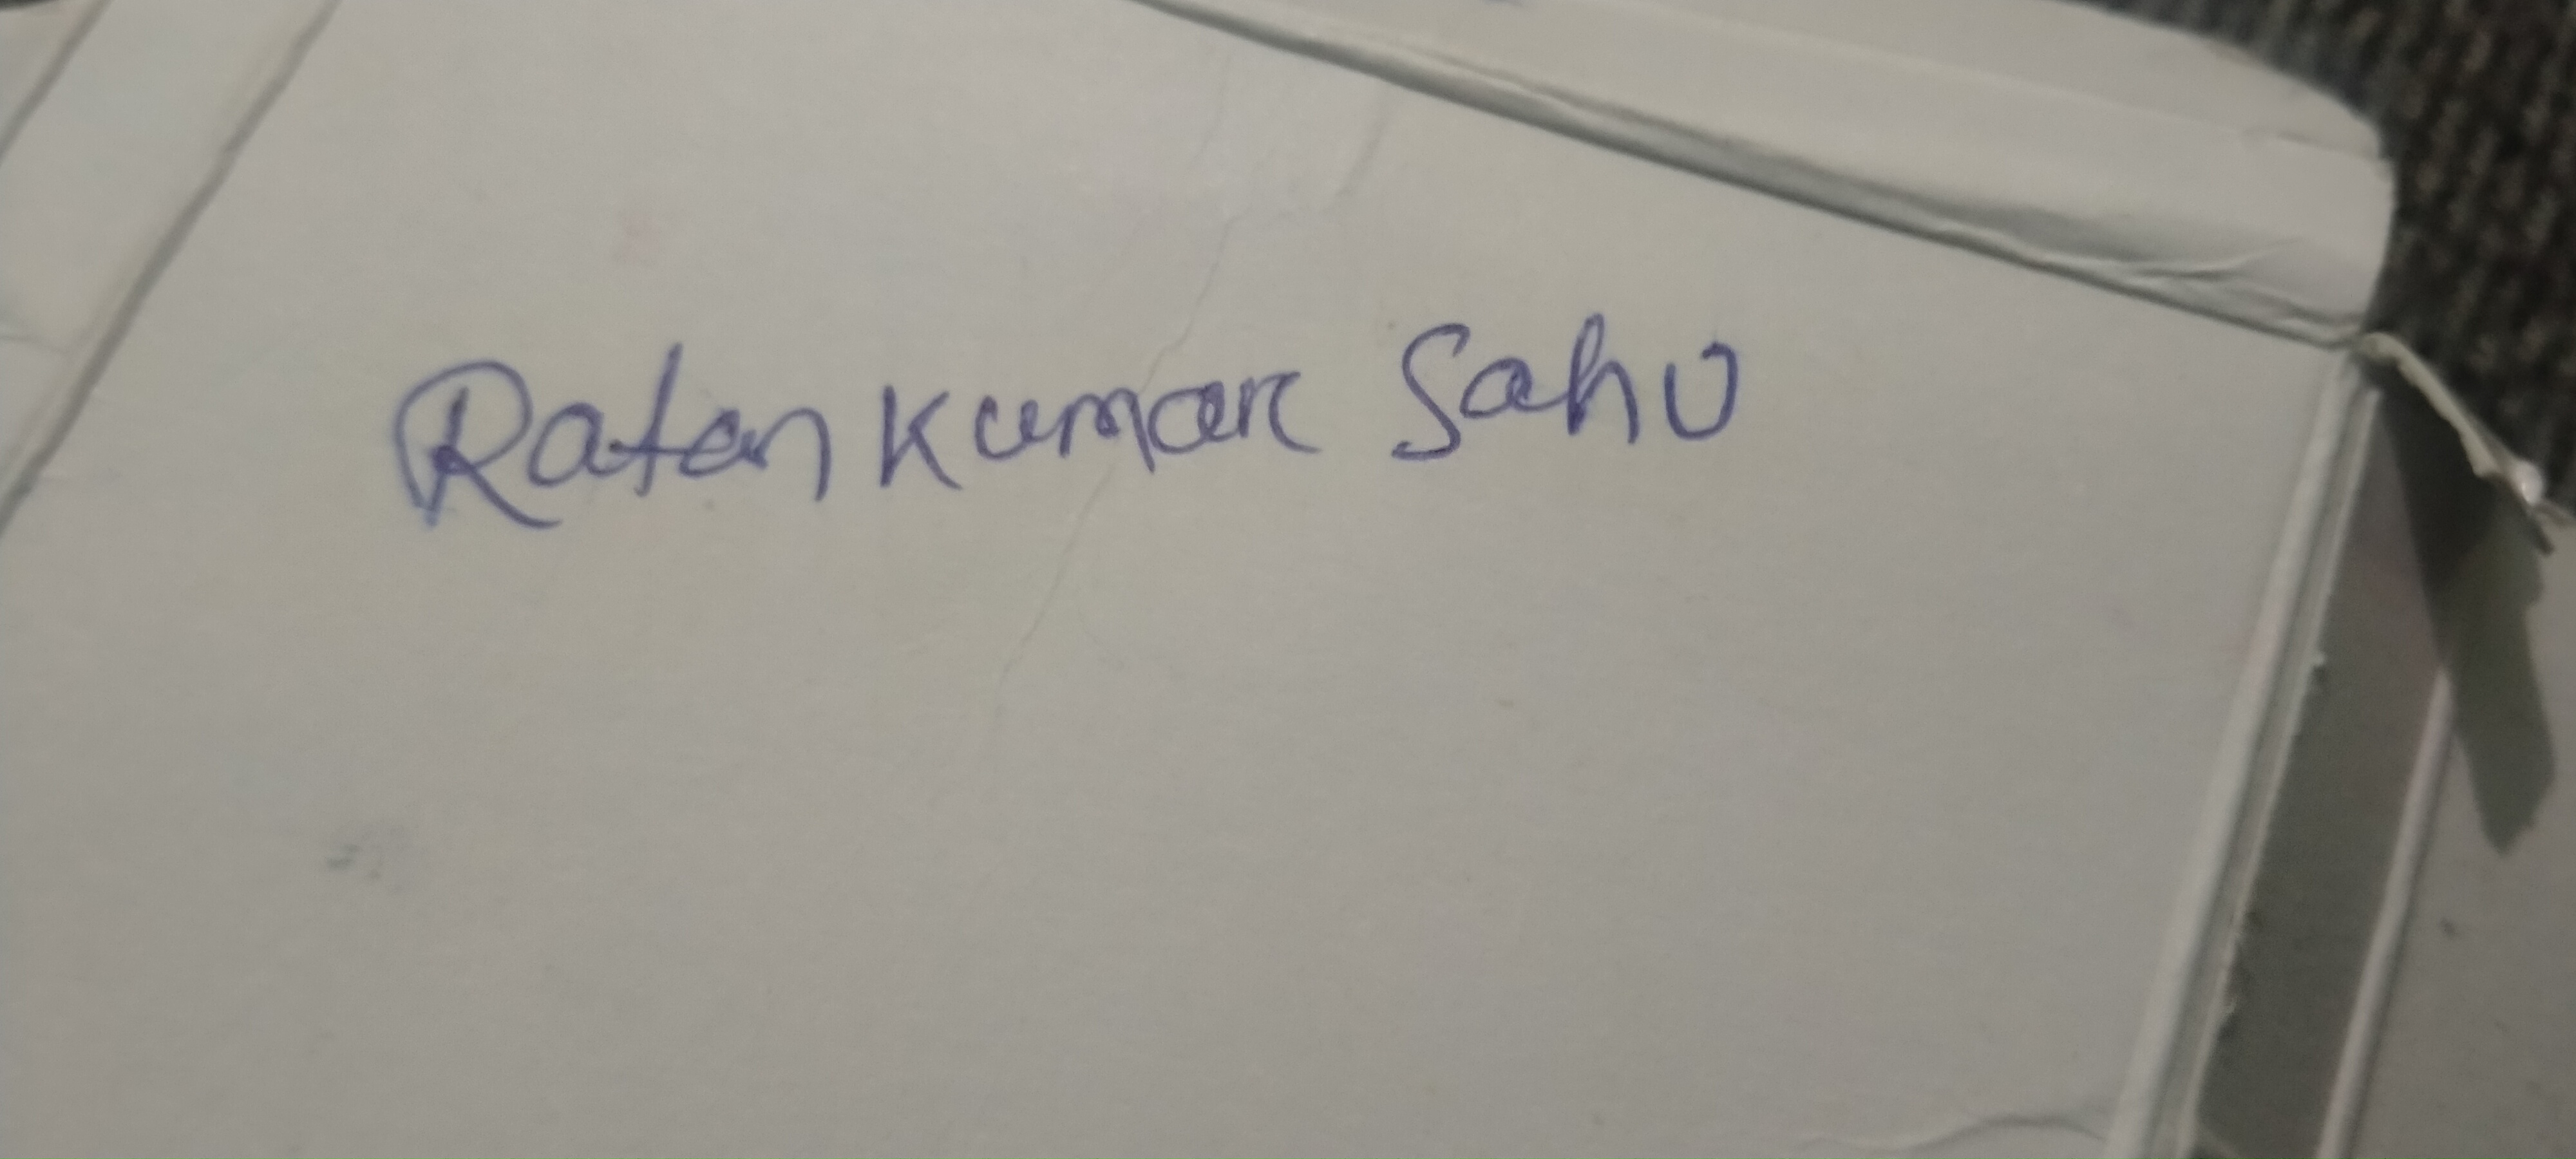 Ratan Kumar Sahu